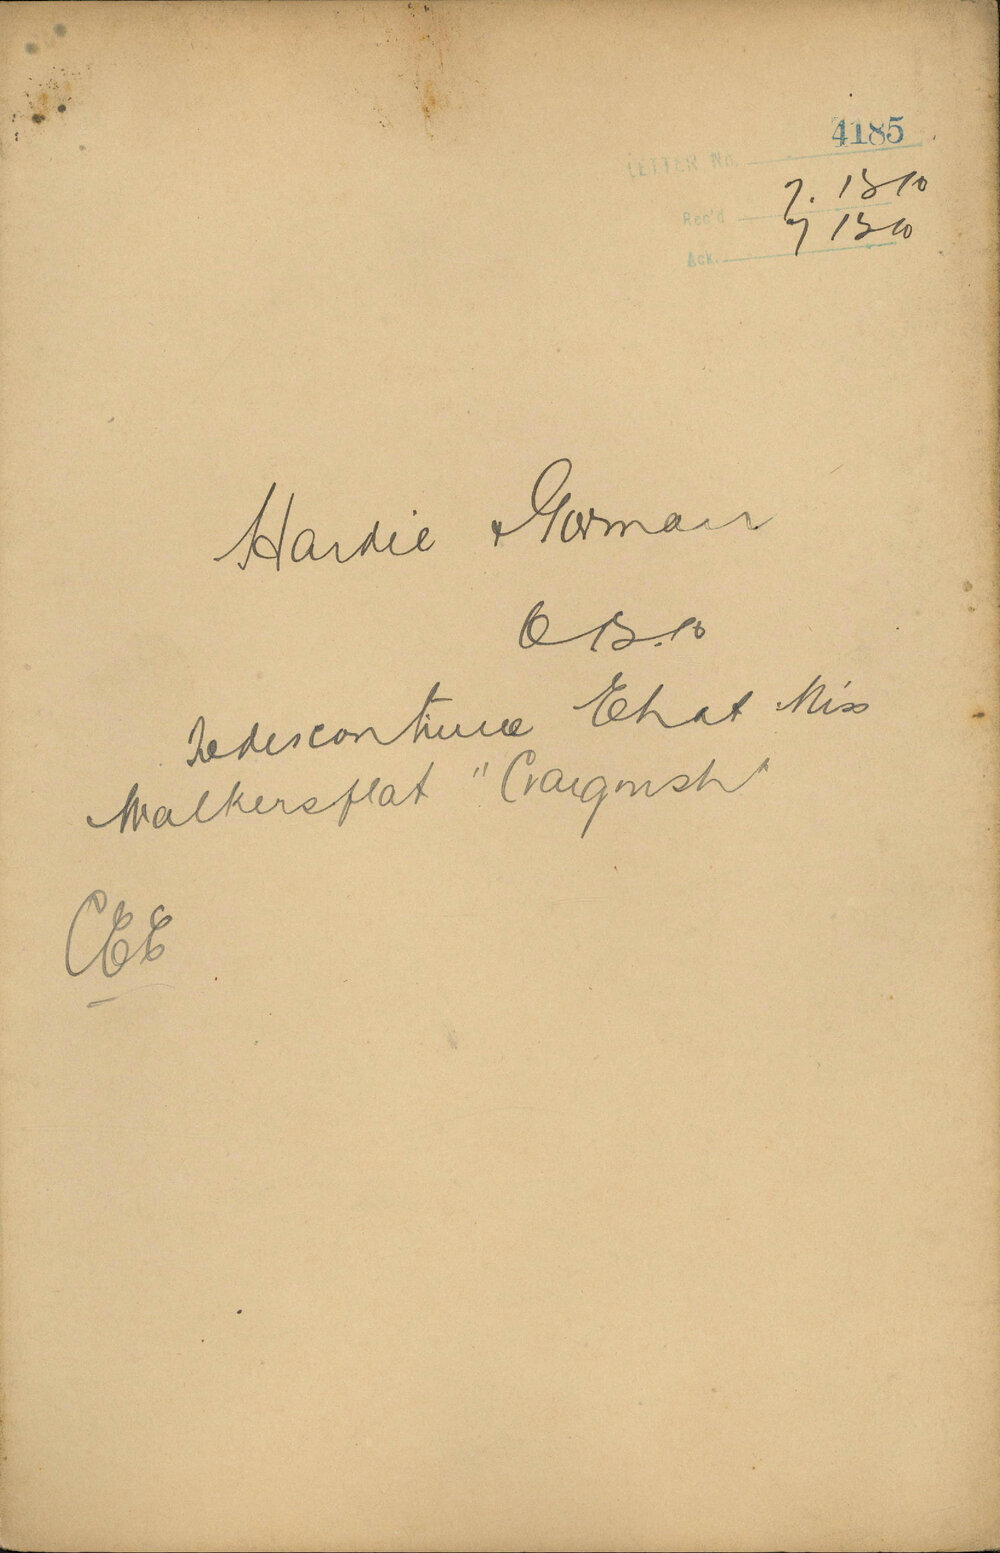 4185
LETTER No.
Rec'd 7.10
Ack. 7
Hardie & Gorman
re discontinue E that Miss
Walkers flat "Craigmish"
CEE